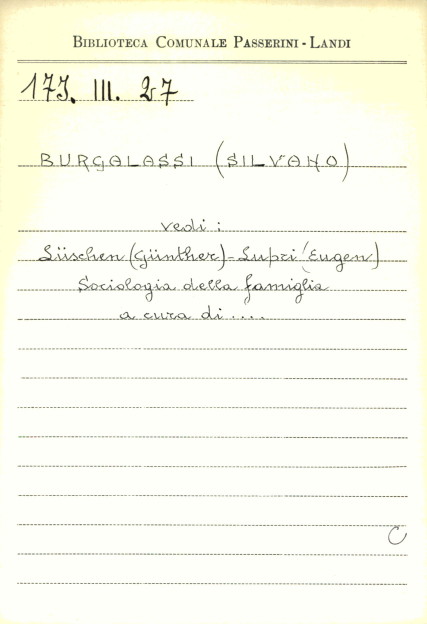 BIBLIOTECA COMUNALE PASSERINI - LANDI
17J. III. 27
BURGALASSI (SILVANO)
vedi :
Lüschen (Günther) - Lupri (Eugen)
Sociologia della famiglia
a cura di ....
C